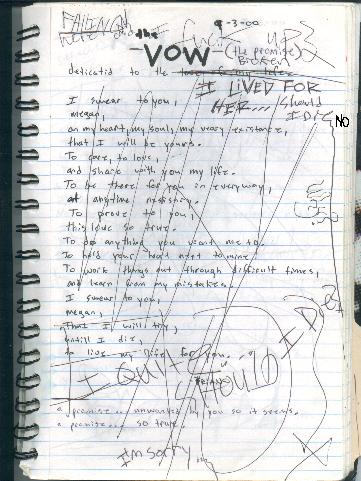 FALLING
9-3-00
the
VOW
(the promise)
Broken
dedicatid to the love of my life
I LIVED FOR
HER...
should
I DIE
NO
I swear to you,
megan,
on my heart, my soul, my very existance,
that I will be yours.
To care, to love,
and share with you my life.
To be there for you in everyway,
at anytime necissary.
To prove to you,
this love so true.
To do anything you want me to.
To hold your heart next to mine.
To work things out through difficult times,
and learn from my mistakes.
I swear to you,
megan,
that I will try,
untill I die,
to live my life for you.
I QUIT
SHOULD I DIE?
a promise... unwanted by you so it seems.
a promise... so true.
I'm sorry...